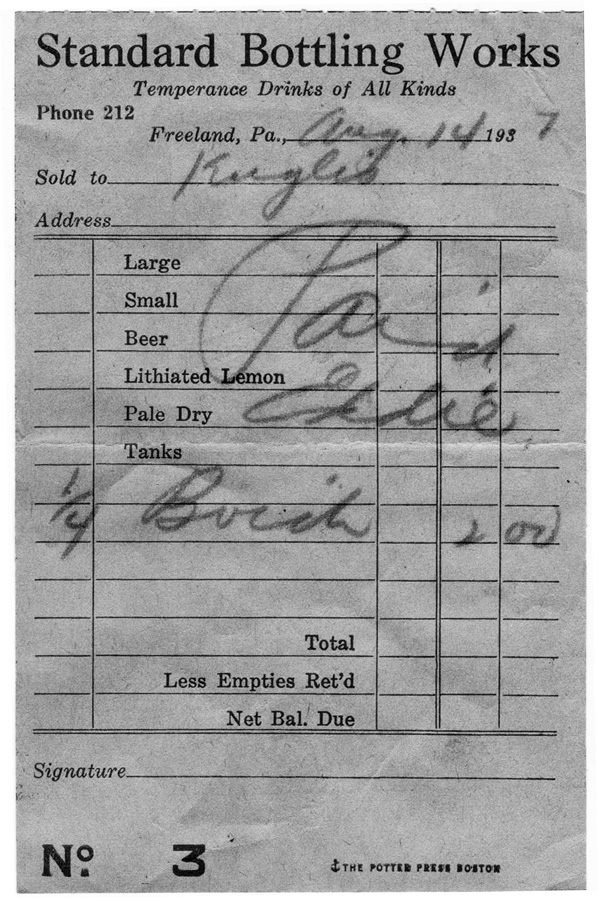 Standard Bottling Works
Temperance Drinks of All Kinds
Phone 212
Freeland, Pa., Aug. 14 1937
Sold to
Address
Large
Small
Paid
Beer
Lithiated Lemon
Eddie
Pale Dry
Tanks
1/4 2 00
Total
Less Empties Ret'd
Net Bal. Due
Signature
No. 3
THE POTTER PRESS BOSTON